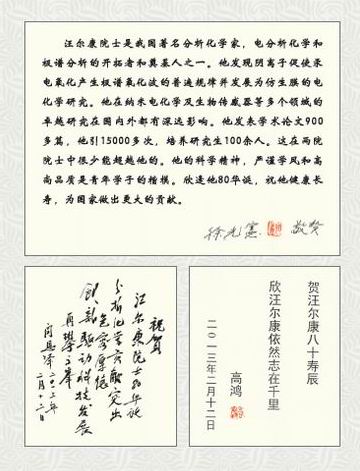 汪尔康院士是我国著名分析化学家，电分析化学和
极谱分析的开拓者和奠基人之一。他发现阴离子促使汞
电氧化产生极谱氧化波的普遍规律并发展为仿生膜的电
化学研究。他在纳米电化学及生物传感器等多个领域的
卓越研究在国内外都有深远影响。他发表学术论文900
多篇，他引15000多次，培养研究生100余人。这在两院
院士中很少能超越他的。他的科学精神，严谨学风和高
高品质是青年学子的楷模。欣逢他80华诞，祝他健康长
寿，为国家做出更大的贡献。
徐光宪 敬贺
祝贺
汪尔康院士80华诞
分析化学贡献突出
创新驱动科技发展
闵恩泽 二〇一三年
二月十二日
贺汪尔康八十寿辰
欣汪尔康依然志在千里
高鸿
二〇一三年二月十二日